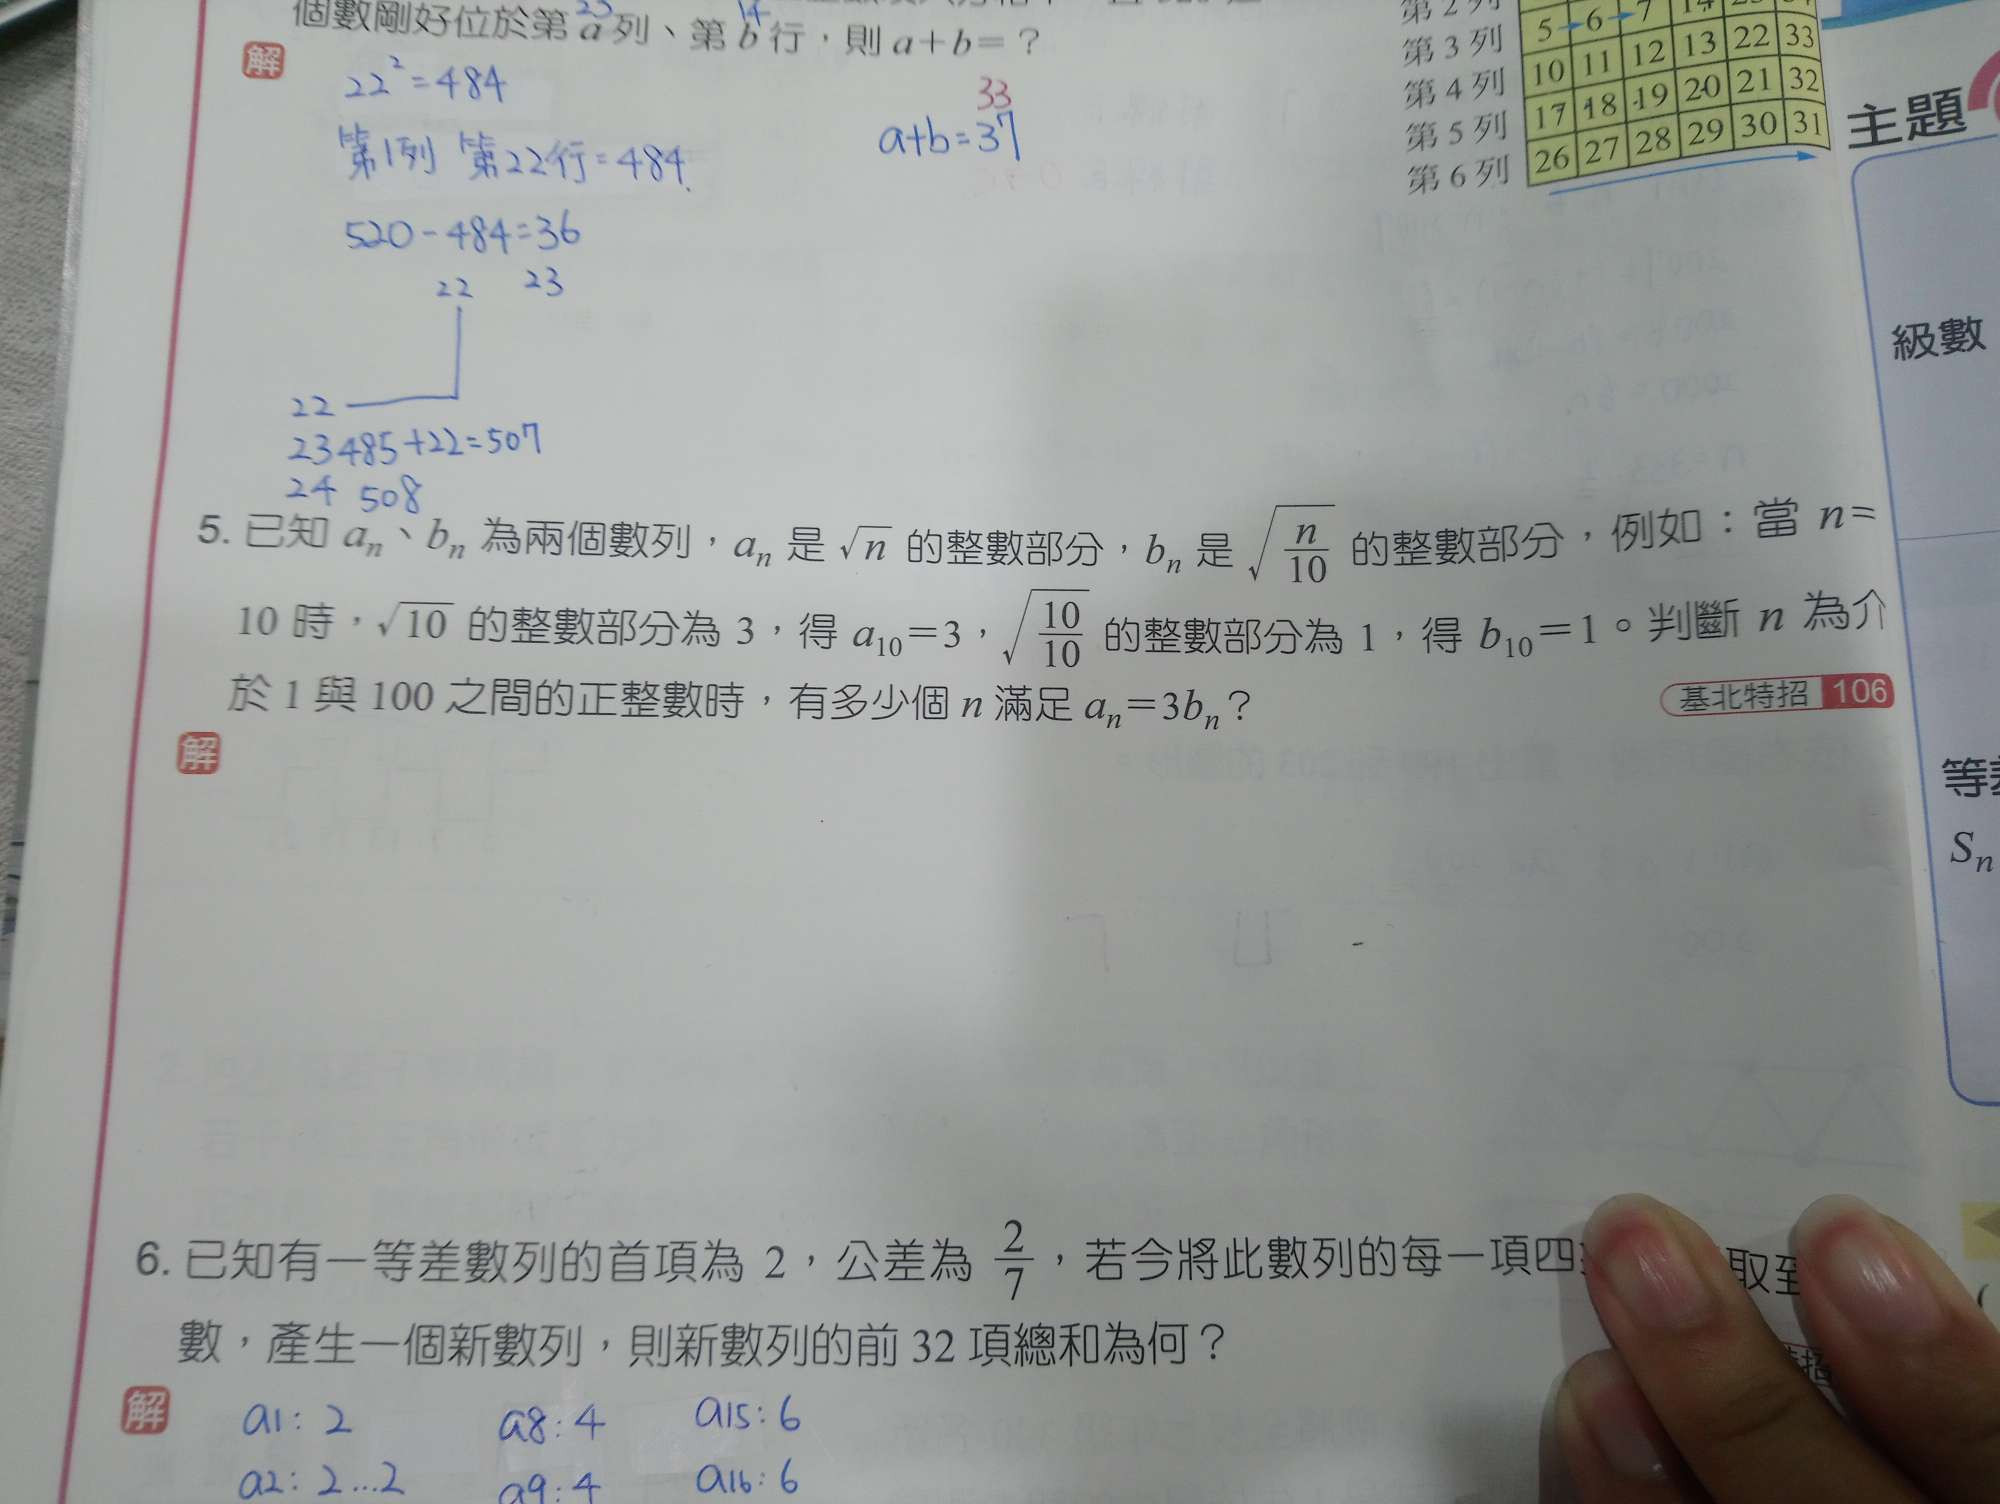 個數剛好位於第 a 列、第 b 行，則 a＋b＝？
23 14
解
22²=484
第1列 第22行=484.
520-484=36
22 23
22
23 485+22=507
24 508
33
a+b=37
第 2 列
第 3 列
第 4 列
第 5 列
第 6 列
5 6 7 14 23 34
10 11 12 13 22 33
17 18 19 20 21 32
26 27 28 29 30 31
主題
級數
Sn
5. 已知 aₙ、bₙ 為兩個數列，aₙ 是 √n 的整數部分，bₙ 是 √(n/10) 的整數部分，例如：當 n＝
10 時，√10 的整數部分為 3，得 a₁₀＝3，√(10/10) 的整數部分為 1，得 b₁₀＝1。判斷 n 為介
於 1 與 100 之間的正整數時，有多少個 n 滿足 aₙ＝3bₙ？
基北特招 106
解
6. 已知有一等差數列的首項為 2，公差為 2/7，若今將此數列的每一項四 取至
數，產生一個新數列，則新數列的前 32 項總和為何？
解
a1: 2 a8: 4 a15: 6
a2: 2...2 a9: 4 a16: 6